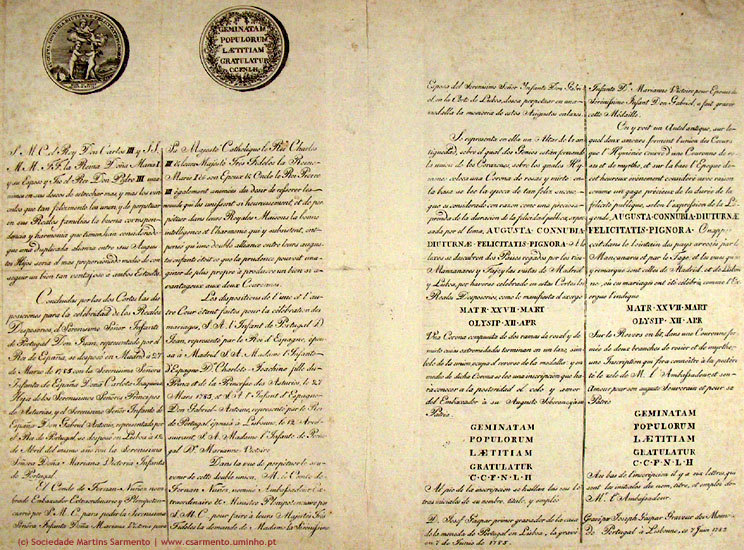 GEMINATAM
POPULORUM
LÆTITIAM
GRATULATUR
C.C.F.N.L.H.
S. M. C. el Rey Don Carlos III y S.S.
M.M. F.F. la Reina Doña Maria I
y su Esposo y Tio el Rey Don Pedro III ani-
mados con deseo de estrechar mas y mas los vin-
culos que tan felizmente las unen, y de perpetuar
en sus Reales Familias la buena correspon-
dencia y harmonia que
que una duplicada alianza entre sus Augus-
tos Hijos seria el mas proporcionado medio de con-
seguir un bien tan ventajoso a ambos Estados.
Concluidas por las dos Cortes las dis-
posiciones para la celebridad de los Reales
Desposorios, el Serenisimo Señor Infante
de Portugal Don Juan, representado por el
Rey de España, se desposó en Madrid à 27
de Marzo de 1785 con la Serenisima Señora
Infanta de España Doña Carlota Joaquina
Hija de los Serenisimos Señores Principes
de Asturias, y el Serenisimo Señor Infante de
España Don Gabriel Antonio, representado por
el Rey de Portugal, se desposó en Lisboa à 12
de Abril del mismo año con la Serenisima
Señora Doña Mariana Victoria Infanta
de Portugal.
El Conde de Fernan Nuñez nom-
brado Embaxador Extraordinario y Plenipoten-
ciario por S. M. C. para pedir la Serenisima
Señora Infanta Doña Mariana Victoria para
Sa Majesté Catholique le Roi Charles
III et leurs Majestés Très Fideles la Reine
Marie I et son Epoux et Oncle le Roi Pierre
III également animés du desir de resserrer les
nœuds qui les unissent si heureusement, et de per-
pétuer dans leurs Royales Maisons la bonne
intelligence et l'harmonie qui y subsistent, ont
pensé qu'une double alliance entre leurs augus-
tes enfants étoit ce que la prudence pouvoit ima-
giner de plus propre à produire un bien si a-
vantageux aux deux Couronnes.
Les dispositions de l'une et l'au-
tre Cour étant faites pour la célébrité des
mariages, S. A. l'Infant de Portugal D.
Jean, représenté par le Roi d'Espagne, épou-
sa à Madrid S. A. Madame l'Infante
d'Espagne D.e Charlote Joachine fille du
Prince et de la Princesse des Asturies, le 27
Mars 1785, et S. A. l'Infant d'Espagne
Don Gabriel Antoine, representé par le Roi
de Portugal épousa à Lisbonne, le 12 Avril
suivant, S. A. Madame l'Infante de Portu-
gal D.e Marianne Victoire.
Dans la vue de perpétuer le sou-
venir de cette double union, M. le Comte de
Fernan Nuñez, nommé Ambassadeur Ex-
traordinaire et Ministre Plenipotentiaire par
S. M. C. pour faire à leurs Majestés Très
Fideles la demande de Madame la Serenissime
Esposa del Serenisimo Señor Infante Don Gabri-
el, en la Corte de Lisboa, desea perpetuar en una me-
dalla la memoria de estos Augustos enlaces.
Se representa en ella un Altar de la an-
tiguedad, sobre el qual dos Genios estan forman-
do la union de los Corazones, sobre los quales Hy-
meneo coloca una Corona de rosas y mirto: en
la basa se lee la epoca de tan feliz suceso
que se considera con razon como una preciosa
prenda de la duracion de la felicidad publica, expre-
sada por el lema, AUGUSTA CONNUBIA DI-
UTURNÆ FELICITATIS PIGNORA. A lo
lexos se descubren dos Países regados por los rios
Manzanares y Tajo, y las vistas de Madrid
y Lisboa, por haverse celebrado en estas Cortes los
Reales Desposorios, como lo manifiesta el exergo
MATR·XXVII·MART
OLYSIP·XII·APR
Una Corona compuesta de dos ramas de rosal y de
mirto cuias extremidades terminan en un lazo, sim-
bolo de la union, ocupa el reverso de la medalla, y en
medio de dicha Corona se lee una inscripcion que ha-
rá conocer à la posteridad el zelo y amor
del Embaxador à su Augusto Soberano, y su
Patria.
GEMINATAM
POPULORUM
LÆTITIAM
GRATULATUR
C·C·F·N·L·H
Al pie de la inscripcion se hallan las seis le-
tras iniciales de su nombre, titulo, y empleo
D. Josef Gaspar primer gravador de la casa
de la moneda de Portugal en Lisboa, la gravó
en 7 de Junio de 1785.
Infante D.e Marianne Victoire pour Epouse du
Serenissime Infant Don Gabriel, a fait graver
cette Médaille.
On y voit un Autel antique, sur le-
quel deux amours forment l'union des Cœurs
que l'Hyménée couvre d'une Couronne de ro-
ses et de myrthe, et sur la base l'Epoque de
cet heureux évenement considéré avec raison
comme un gage précieux de la durée de la
felicité publique, selon l'expression de la Lé-
gende, AUGUSTA·CONNUBIA·DIUTURNÆ·
FELICITATIS·PIGNORA. On apper-
çoit dans le lointain du pays arrosés par le
Mançanares et par le Tage, et les vues qu'on
y remarque sont celles de Madrid, et de Lisbon-
ne, où ces mariages ont été célébrés comme l'Ex-
ergue l'indique
MATR·XXVII·MART
OLYSIP·XII·APR
Sur le Revers on lit, dans une Couronne for-
mée de deux branches de rosier et de myrthe,
une Inscription qui fera connoître à la posteri-
té le zele de M. l'Ambassadeur, et son
Amour pour son auguste Souverain et pour sa
Patrie
GEMINATAM
POPULORUM
LÆTITIAM
GRATULATUR
C·C·F·N·L·H
Au bas de l'inscription il y a six lettres, qui
sont les initiales du nom, titre, et emploi de
M. l'Ambassadeur.
Gravé par Joseph Gaspar Graveur des Mon-
noies de Portugal à Lisbonne, ce 7 Juin 1785
(c) Sociedade Martins Sarmento | www.csarmento.uminho.pt